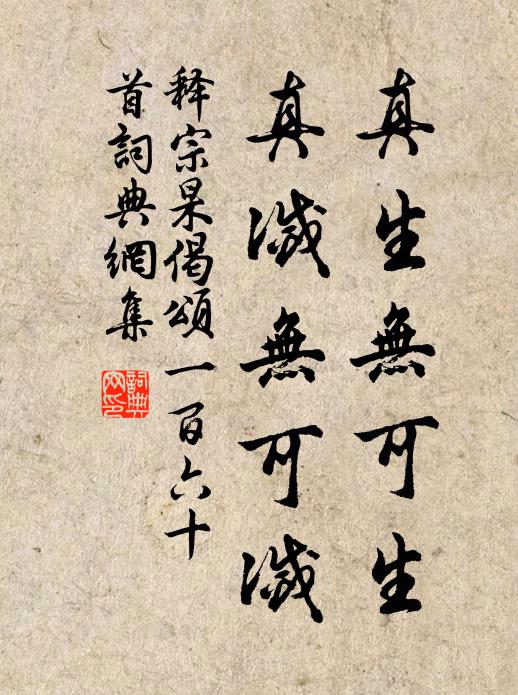 真生無可生
真滅無可滅
释宗杲偈頌一百六十
首詞典網集
詞典網印